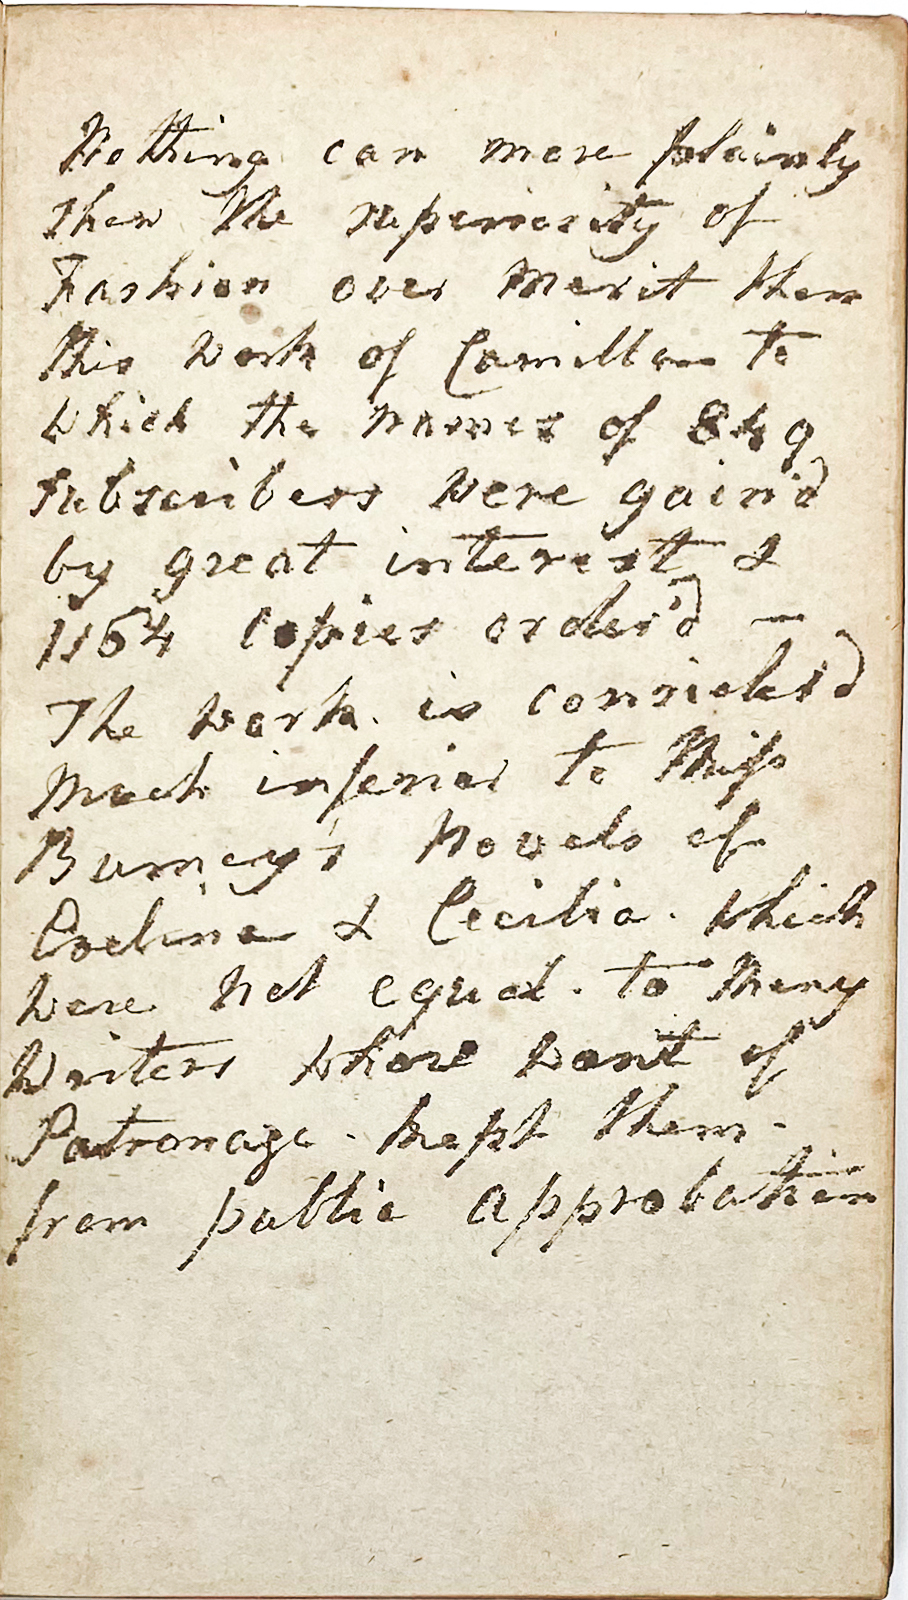 Nothing can more plainly
shew the superiority of
Fashion over Merit then
this Work of Camilla to
which the names of 849
subscribers were gain'd
by great interest &
1164 Copies order'd —
The work is consider'd
Much inferior to Miss
Burney's Novels of
Evelina & Cecilia. which
were not equal. to Many
Writers whose want of
Patronage. kept them.
from public approbation